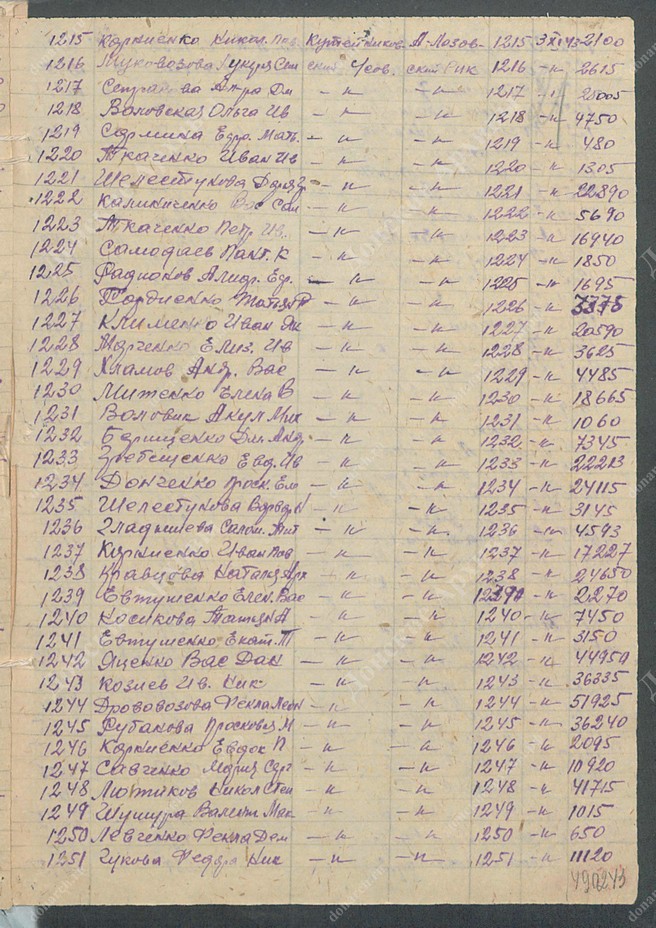 1215 Корниенко Никол. Пав. Кутейников- А-Лозов- 1215 3 XI 43 2100
1216 Муковозова Лукуря Сем ский Усов. ский РИК 1216 -"- 2615
1217 Дм -"- -"- 1217 -"-
1218 Воловская Ольга Ив -"- -"- 1218 -"- 4750
1219 Сермина Евдо. Мать. -"- -"- 1219 -"- 480
1220 Ткаченко Иван Ив -"- -"- 1220 -"- 1305
1221 Шелестукова -"- -"- 1221 -"- 22890
1222 Калиниченко Вас Сем -"- -"- 1222 -"- 5690
1223 Ткаченко Петр Ив. -"- -"- 1223 -"- 16940
1224 Самодаев Пант. К -"- -"- 1224 -"- 1850
1225 Радионов Алидр. Ег. -"- -"- 1225 -"- 1695
1226 Гордиенко -"- -"- 1226 -"-
1227 Клименко Иван Як -"- -"- 1227 -"- 20590
1228 Марченко Елиз. Ив -"- -"- 1228 -"- 3625
1229 Хламов Анд. Вас -"- -"- 1229 -"- 4485
1230 Митенко Елена В -"- -"- 1230 -"- 18665
1231 Воловик Акул Мик -"- -"- 1231 -"- 1060
1232 -"- -"- 1232 -"- 7345
1233 Гребещенко Евд. Ив -"- -"- 1233 -"- 22213
1234 Донченко Прос. Ем -"- -"- 1234 -"- 24115
1235 Шелестукова Варвар -"- -"- 1235 -"- 3145
1236 Гладышева Салом. Тит -"- -"- 1236 -"- 4593
1237 Корниенко Иван Пав -"- -"- 1237 -"- 17227
1238 Кравцова Наталья Арх -"- -"- 1238 -"- 24650
1239 Евтушенко Елен. Вас -"- -"- 1239 -"- 2270
1240 Косикова Татьян А -"- -"- 1240 -"- 7450
1241 Евтушенко Екат. Т -"- -"- 1241 -"- 3150
1242 Яценко Вас Дан -"- -"- 1242 -"- 44950
1243 Козлев Ив. Ник -"- -"- 1243 -"- 36335
1244 Дрововозова Фекла Леон -"- -"- 1244 -"- 51925
1245 Рубанова Просковья М -"- -"- 1245 -"- 36240
1246 Корниенко Евдок П -"- -"- 1246 -"- 2095
1247 Савченко Мария Серг -"- -"- 1247 -"- 10920
1248 Лютиков Никол Степ -"- -"- 1248 -"- 41715
1249 Шушура Валент Мак -"- -"- 1249 -"- 1015
1250 Левченко Фекла Дем -"- -"- 1250 -"- 650
1251 Чукова Федора Ник -"- -"- 1251 -"- 11120
490243